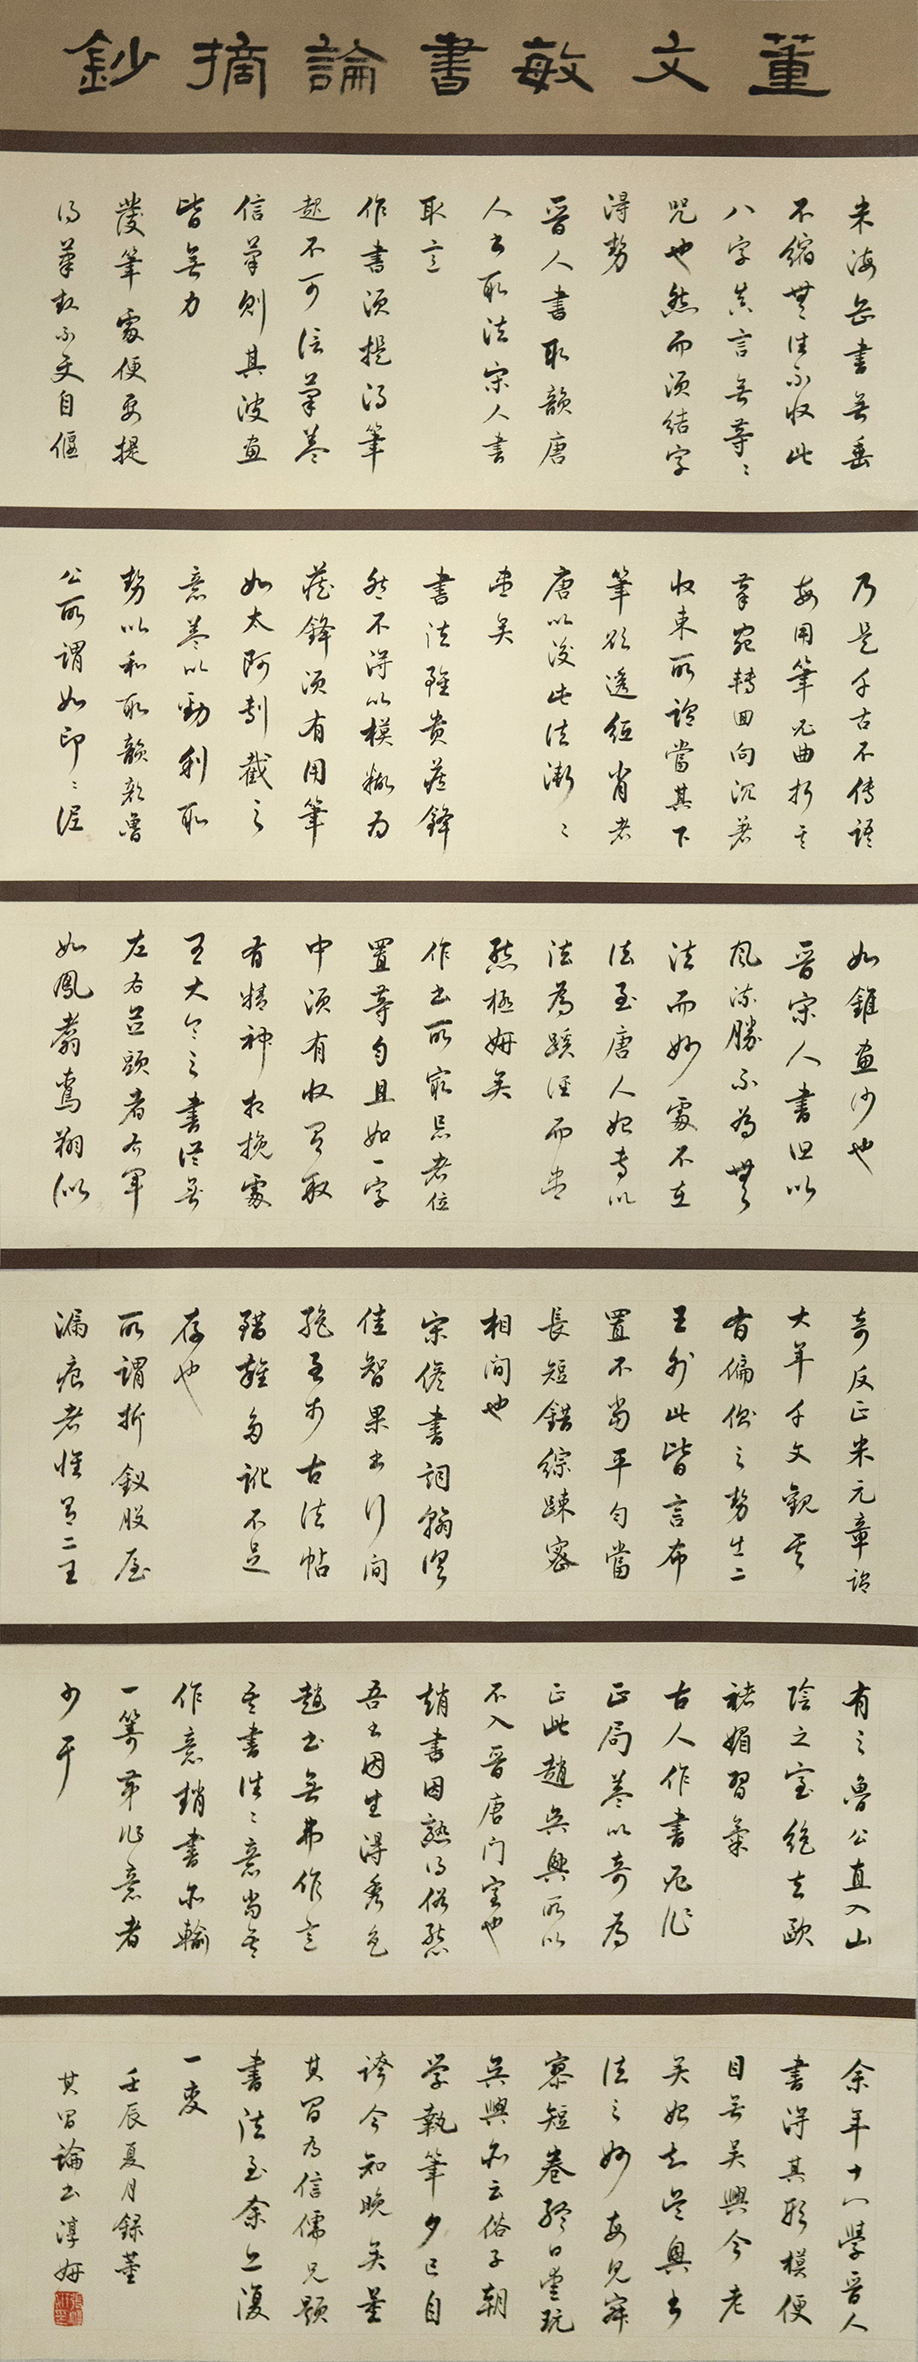 董文敏書論摘鈔
米海岳書無垂
不縮無往不收此
八字真言無等々
咒也然而須結字
得勢
晉人書取韻唐
人書取法宋人書
取意
作書須提得筆
起不可信筆蓋
信筆則其波畫
皆無力
發筆處便要提
得筆起不更自偃
乃是千古不傳語
每用筆凡曲折其
筆宛轉回向沉著
收束所謂當其下
筆欲透紙背者
唐以後此法漸々
盡矣
書法雖貴藏鋒
然不得以模糊為
藏鋒須有用筆
如太阿剸截之
意蓋以勁利取
勢以和取韻顏魯
公所謂如印々泥
如錐畫沙也
晉宋人書但以
風流勝不為無
法而妙處不在
法至唐人始專以
法為蹊徑而盡
態極妍矣
作書所最忌者位
置等勻且如一字
中須有收有放
有精神相挽處
王大令之書從無
左右並頭者右軍
如鳳翥鸞翔似
奇反正米元章謂
大年千文觀其
有偏側之勢出二
王外此皆言布
置不當平勻當
長短錯綜疎密
相間也
宋儋書詞翰俱
佳智果書行間
古法帖
錯雜多訛不足
存也
所謂折釵股屋
漏痕者惟有二王
有之魯公直入山
陰之室絕去歐
褚媚習氣
古人作書必不作
正局蓋以奇為
正此趙吳興所以
不入晉唐門室也
趙書因熟得俗態
吾書因生得秀色
趙書無弗作意
吾書往々意當吾
作意趙書亦輸
一籌第作意者
少耳
余年十八學晉人
書得其形模便
目無吳興今老
矣始知吳興書
法之妙每見
短卷終日愛玩
吳興亦云俗子朝
學執筆夕已自
誇今知晚矣董
其昌為信儒兄題
書法至余亦復
一變
壬辰夏月錄董
其昌論書淳妍